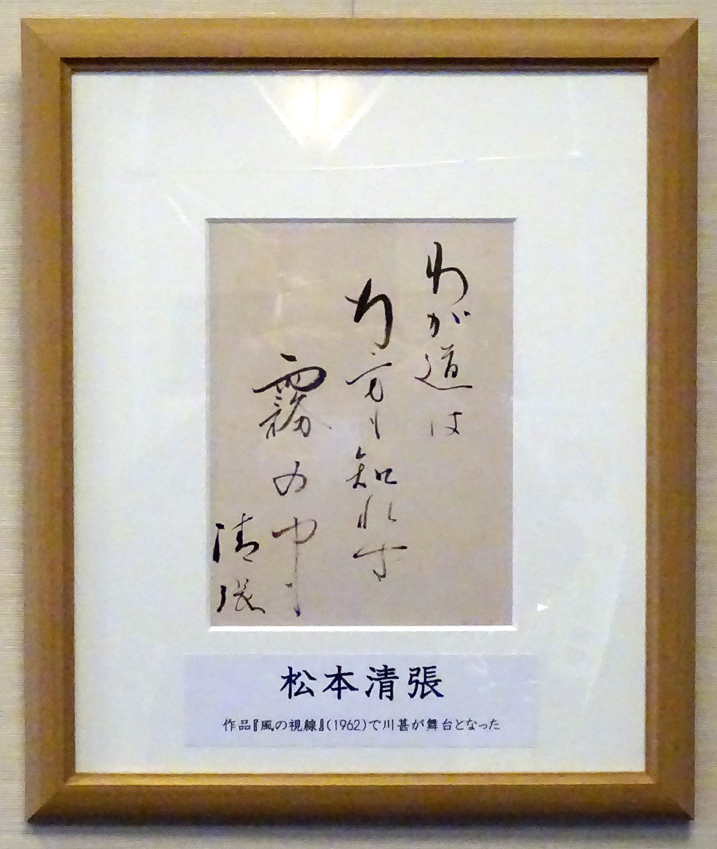 わが道は
行方も知れず
霧の中
清張
松本清張
作品『風の視線』(1962)で川甚が舞台となった